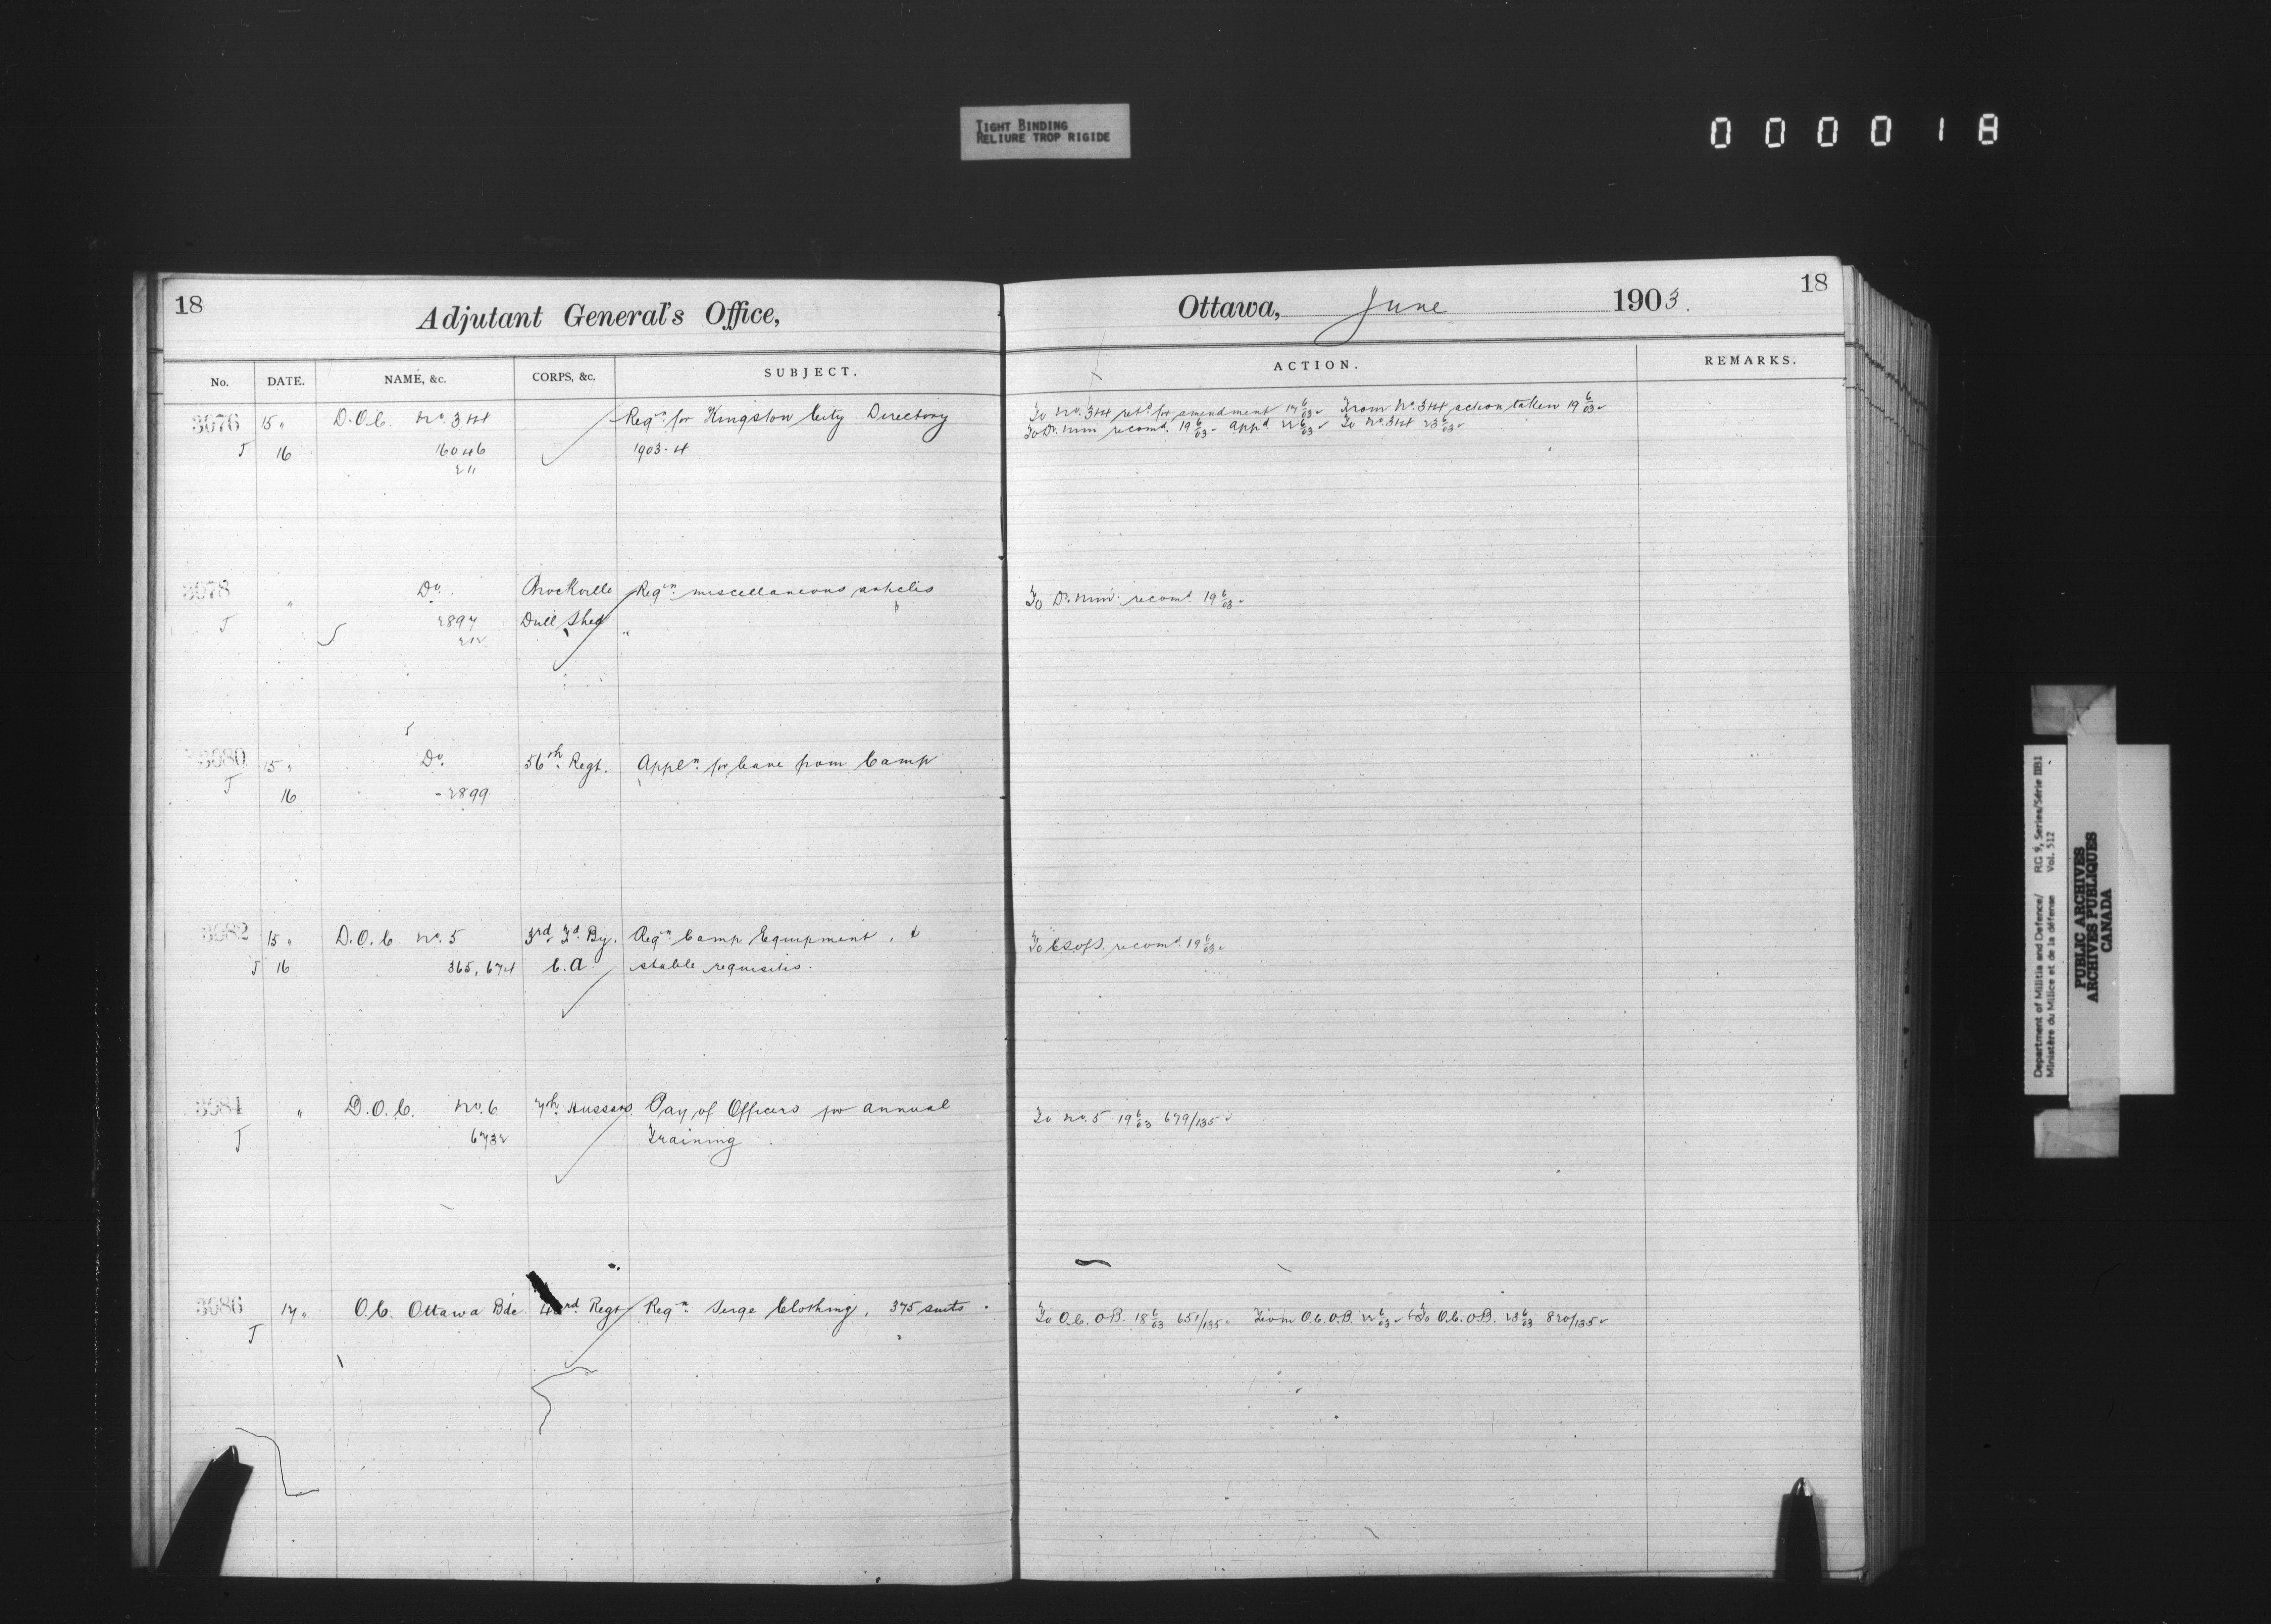 TIGHT BINDING
RELIURE TROP RIGIDE
000018
18
Adjutant General's Office,
Ottawa, June 1903.
18
No. DATE. NAME, &c. CORPS, &c. SUBJECT. ACTION. REMARKS.
3076 15 " D.O.C. No. 3 & 4 Reqn for Kingston City Directory To No. 3 & 4 retd for amendment 17 6/03 From No. 3 & 4 action taken 19 6/03
To Dr. Min recomd. 19 6/03 - appd 22 6/03 To No. 3 & 4 23 6/03
J 16 16046 1903-4
211
3078 " Do. Brockville Reqn miscellaneous articles To Dr. Min. recomd. 19 6/03
J 2897 Drill Shed "
212
3080 15 " Do. 56th Regt. Appln for leave from Camp
J 16 - 2899
3082 15 " D.O.C No. 5 3rd Fd. By. Reqn Camp Equipment, & To C.S. of S. recomd. 19 6/03
J 16 365, 674 C.A. stable requisites.
3084 " D.O.C. No. 6 7th Hussars Pay of Officers for annual To No. 5 19 6/03 679/135
J 6732 Training
3086 17 " O.C. Ottawa Bde. 43rd Regt Reqn Serge Clothing, 375 suits. To O.C. O.B. 18 6/03 651/135 From O.C. O.B. 22 6/03 To O.C. O.B. 23 6/03 820/135
J
Department of Militia and Defence/ RG 9, Series/Série IIB1
Ministère du Milice et de la défense Vol. 512
PUBLIC ARCHIVES
ARCHIVES PUBLIQUES
CANADA